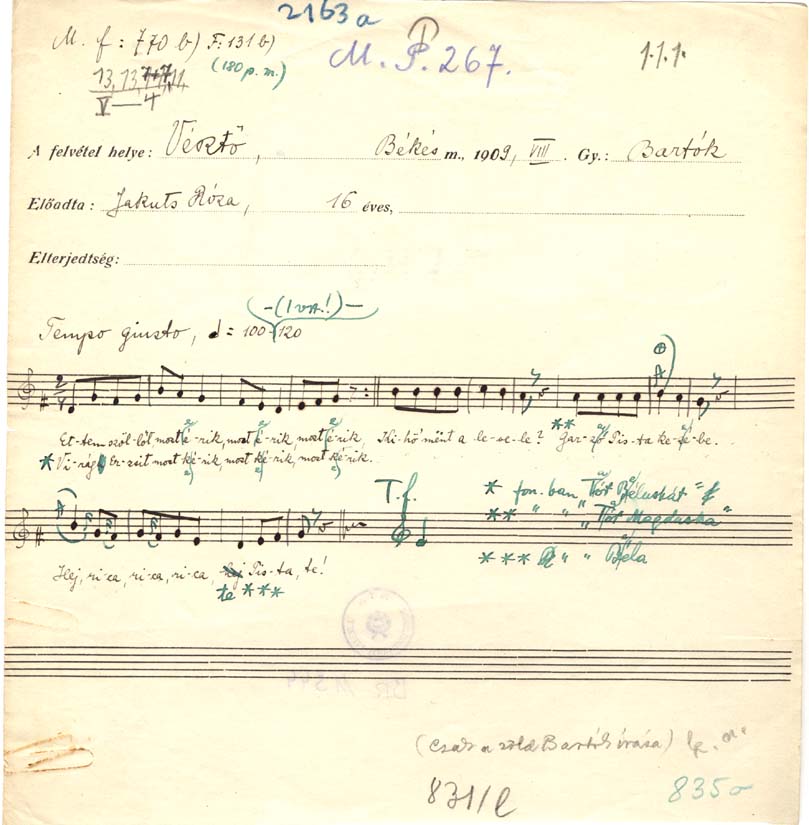 2163a
M. f: 770 b) F: 131 b)
(180 p. m.)
M. P. 267.
1.1.1.
V — 4
A felvétel helye: Vésztő, Békés m., 1909, VIII. Gy.: Bartók
Előadta: Jakuts Róza, 16 éves,
Elterjedtség:
-(1 vsz.!)-
Tempo giusto, ♩ = 100-120
Et-tem szől-lőt most é-rik, most é-rik, most é-rik, Ki-hő mënt a le-ve-le? Gar-zó Pis-ta ke-zé-be.
* Vi-rág Er-zsit most ké-rik, most ké-rik, most ké-rik.
T. f.
* fon.ban, Tót Béluskát
** " " "Tót Magduska"
*** " " Béla
Hej, ri-ca, ri-ca, ri-ca, Pis-ta, te!
te ***
(csak a zöld Bartók írása) k. n.
831/l
835